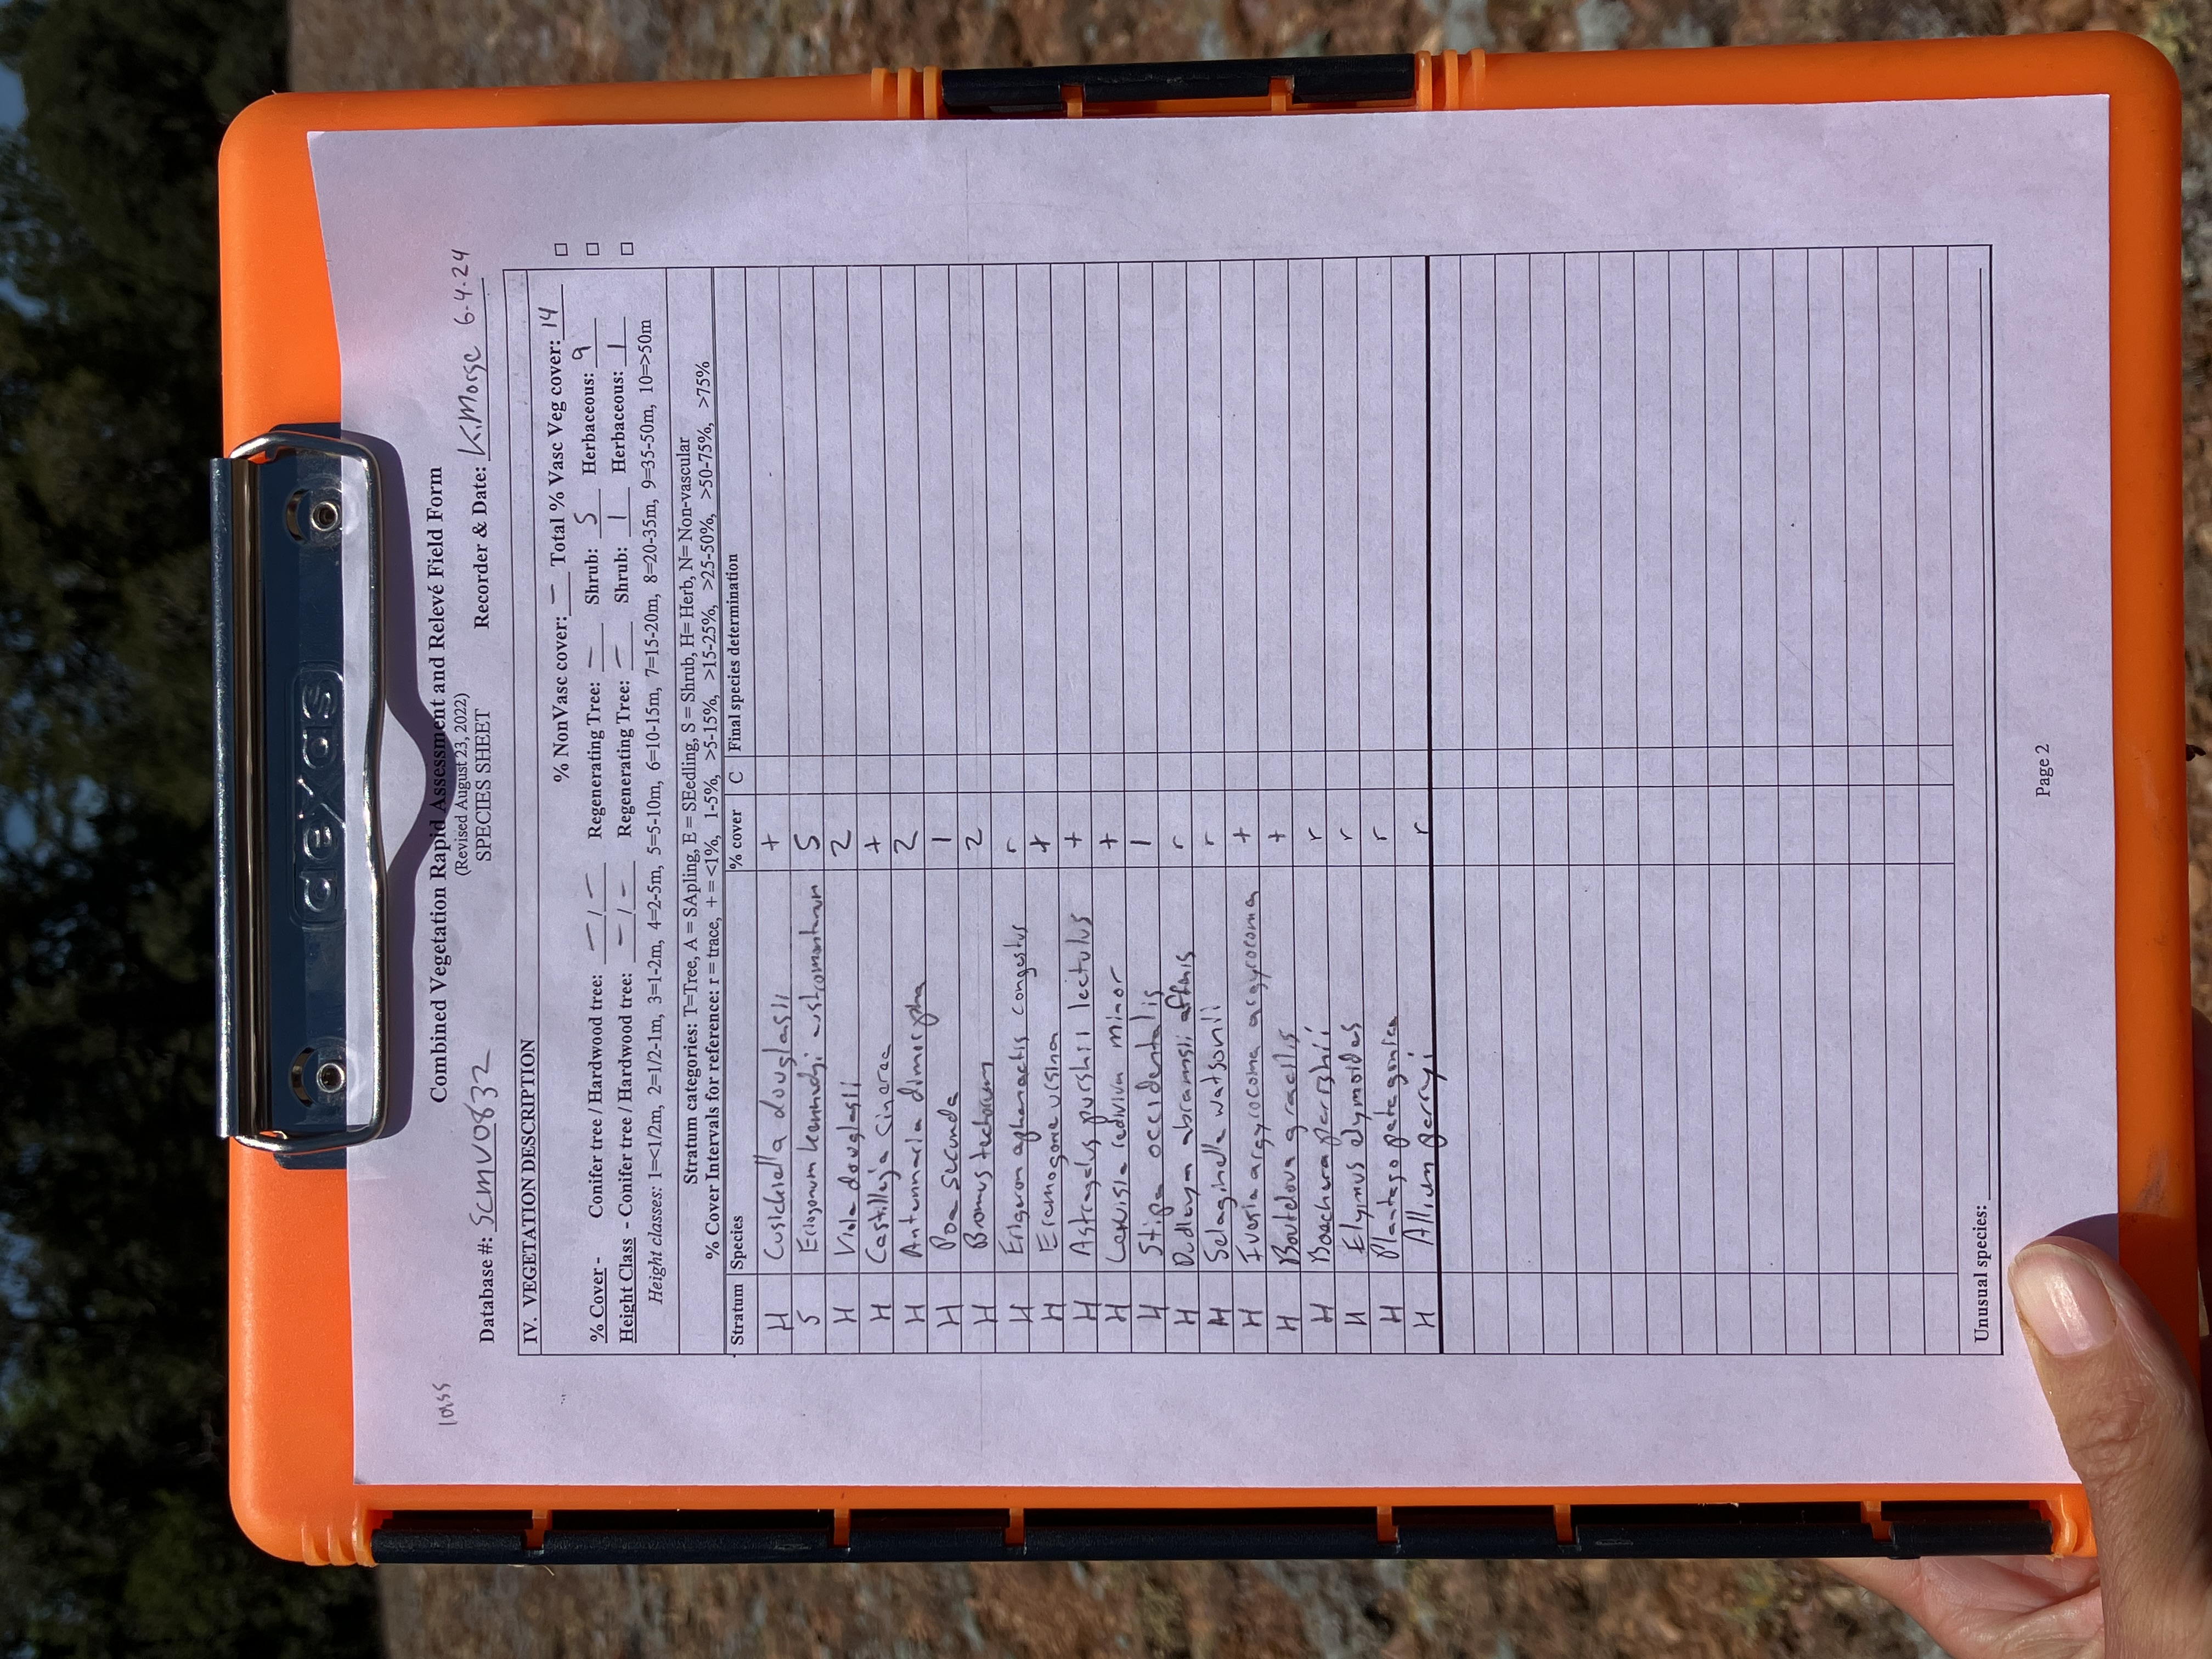 dexas
1055
Combined Vegetation Rapid Assessment and Relevé Field Form
(Revised August 23, 2022)
Database #: SCMV0832 SPECIES SHEET Recorder & Date: K. Morse 6.4.24
IV. VEGETATION DESCRIPTION
% NonVasc cover: – Total % Vasc Veg cover: 14
% Cover - Conifer tree / Hardwood tree: – / – Regenerating Tree: – Shrub: 5 Herbaceous: 9
Height Class - Conifer tree / Hardwood tree: – / – Regenerating Tree: – Shrub: 1 Herbaceous: 1
Height classes: 1=<1/2m, 2=1/2-1m, 3=1-2m, 4=2-5m, 5=5-10m, 6=10-15m, 7=15-20m, 8=20-35m, 9=35-50m, 10=>50m
Stratum categories: T=Tree, A = SApling, E = SEedling, S = Shrub, H= Herb, N= Non-vascular
% Cover Intervals for reference: r = trace, + = <1%, 1-5%, >5-15%, >15-25%, >25-50%, >50-75%, >75%
Stratum Species % cover C Final species determination
H Cusickiella douglasii +
S Eriogonum kennedyi austromontanum 5
H Viola douglasii 2
H Castilleja cinerea +
H Antennaria dimorpha 2
H Poa secunda 1
H Bromus tectorum 2
H Erigeron aphanactis congestus r
H Eremogone ursina +
H Astragalus purshii lectulus +
H Lewisia rediviva minor +
H Stipa occidentalis 1
H Dudleya abramsii affinis r
H Selaginella watsonii r
H Ivesia argyrocoma argyrocoma +
H Bouteloua gracilis +
H Boechera parishii r
H Elymus elymoides r
H Plantago patagonica r
H Allium parryi r
Unusual species:
Page 2